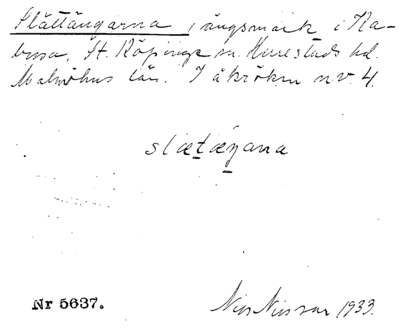 Slättängarna, ängsmark i Ka-
busa, St. Köpinge sn. Herrestads hd.
Malmöhus län. I åkrökn n.v. 4.
slætæŋana
Nr 5637.
Nils Nilsson 1933.